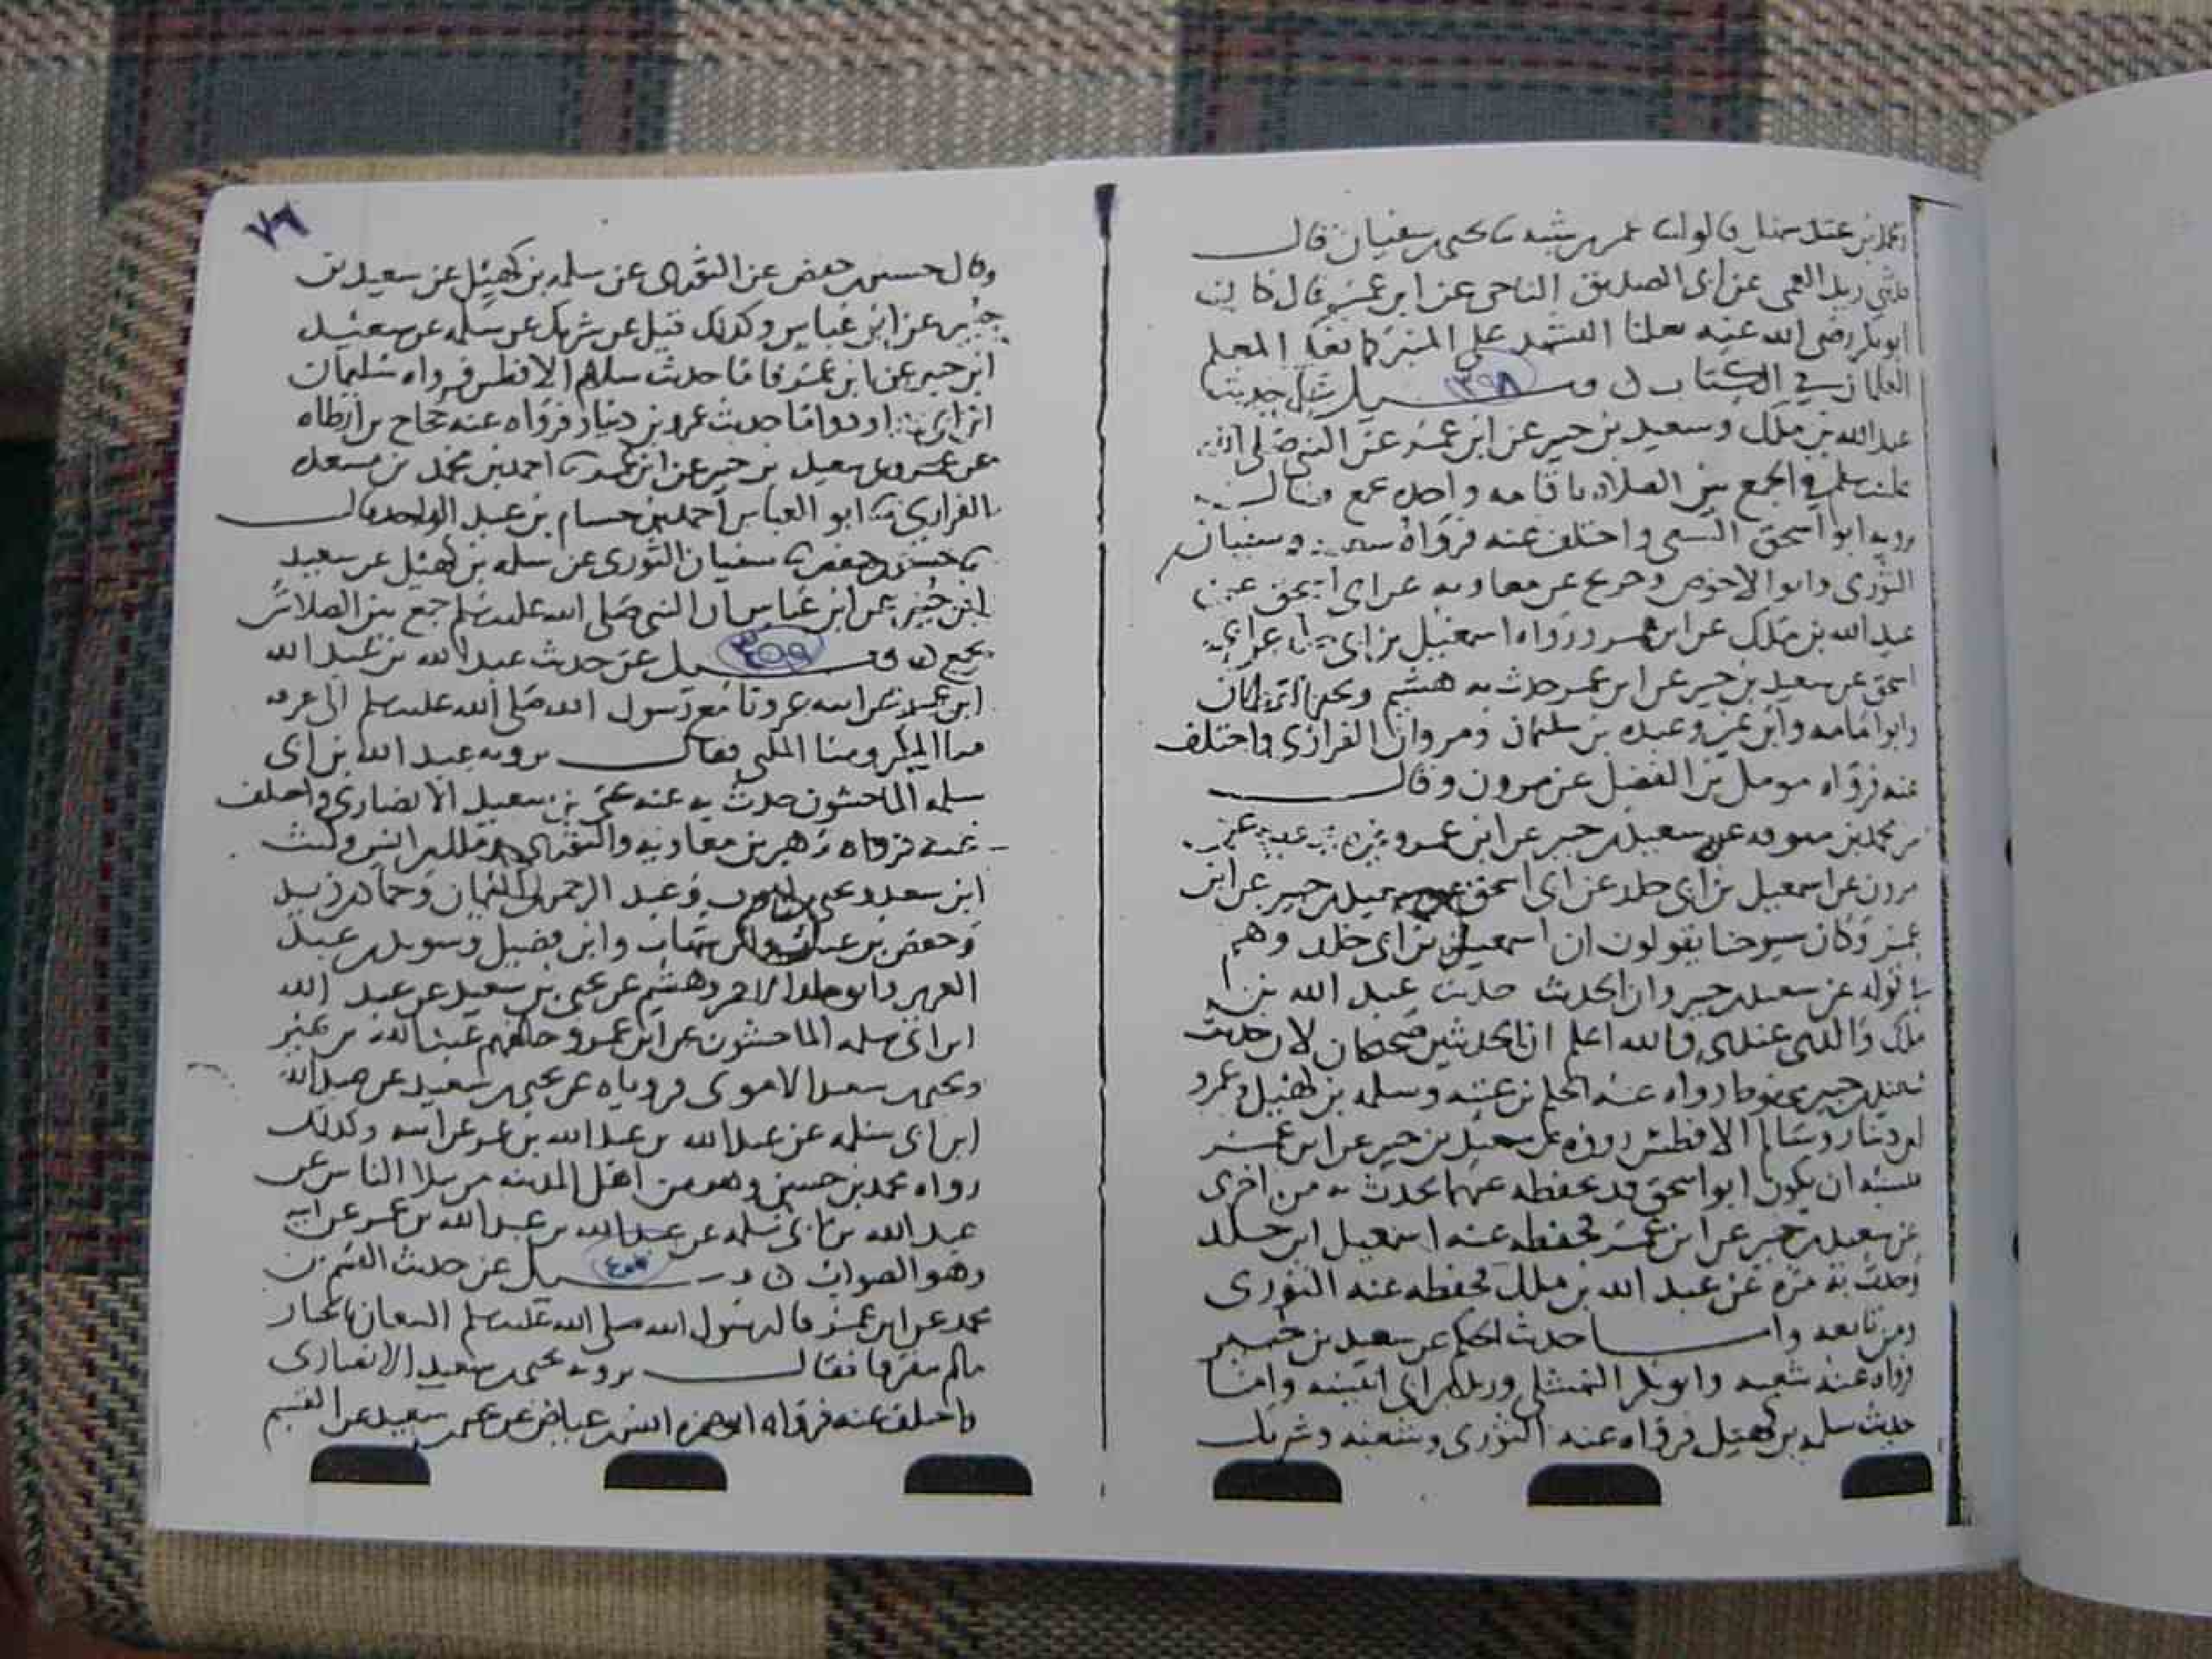 قالوا عمر بن شبه نا يحيى بن سفيان قال
العمى عن ابى الصديق الناجى عن ابن عمر قال كان
ابو بكر رضى الله عنه يعلمنا التشهد على المنبر كما يعلم المعلم
الغلمان في الكتاب ن وسيل ٣٩٨ عن حديث
عبد الله بن ملك وسعيد بن جبير عن ابن عمر عن النبى صلى الله
عليه وسلم في الجمع بين الصلاتين باقامه واحده بجمع فقال
يرويه ابو اسحق السبيعى واختلف عنه فرواه شعبة وسفيان
الثورى وابو الاحوص وخديج بن معاويه عن ابى اسحق عن
عبد الله بن ملك عن ابن عمر ورواه اسمعيل بن ابى خالد عن ابى
اسحق عن سعيد بن جبير عن ابن عمر حدث به هشيم ويحيى القطان
وابو اسامه وابن نمير وعبده بن سليمان ومروان الفزارى واختلف
عنه فرواه مومل بن الفضل عن مروان وقال
عن محمد بن سوقه عن سعيد بن جبير عن ابن عمر وغيره يرويه عن
مروان عن اسمعيل بن ابى خلد عن ابى اسحق عن سعيد بن جبير عن ابن
عمر وكان شيوخنا يقولون ان اسمعيل بن ابى خلد وهم
في قوله عن سعيد بن جبير وان الحديث حديث عبد الله بن
ملك والذى عندى والله اعلم ان الحديثين صحيحان لان حديث
سعيد بن جبير محفوظ رواه عنه الحكم بن عتيبه وسلمه بن كهيل وعمرو
ابن دينار وسالم الافطس رووه عن سعيد بن جبير عن ابن عمر
فيشبه ان يكون ابو اسحق قد حفظه عنهما فحدث به مره اخرى
عن سعيد بن جبير عن ابن عمر فحفظه عنه اسمعيل ابن خلد
وحدث به مره عن عبد الله بن ملك فحفظه عنه الثورى
ومن تابعه واما حديث الحكم عن سعيد بن جبير
فرواه عنه شعبه وابو بكر النهشلى وزيد بن ابى انيسه واما
حديث سلمه بن كهيل فرواه عنه الثورى وشعبه وشريك
٧٩
وقال حسين بن حفص عن الثورى عن سلمه بن كهيل عن سعيد بن
جبير عن ابن عباس وكذلك قيل عن شريك عن سلمه عن سعيد
ابن جبير عن ابن عمر فاما حديث سالم الافطس فرواه سليمان
ابن ابى داود واما حديث عمرو بن دينار فرواه عنه حجاج بن ارطاه
عن عمرو عن سعيد بن جبير عن ابن عمر نا احمد بن محمد بن مسعده
الفزارى نا ابو العباس احمد بن حسام بن عبد الواحد قال
نا حسين بن حفص نا سفيان الثورى عن سلمه بن كهيل عن سعيد
ابن جبير عن ابن عباس ان النبى صلى الله عليه وسلم جمع بين الصلاتين
بجمع ن وسيل ٣٩٩ عن حديث عبد الله بن عبد الله
ابن عمر عن ابيه غدونا مع رسول الله صلى الله عليه وسلم الى عرفه
منا المكبر ومنا الملبى فقال يرويه عبد الله بن ابى
سلمه الماجشون حدث به عنه يحيى بن سعيد الانصارى واختلف
عنه فرواه زهير بن معاويه والثورى وملك بن انس وليث
ابن سعد ويحيى بن ايوب وعبد الرحمن بن النعمان وحماد بن زيد
وحفص بن غياث وابن شهاب وابن فضيل وسويد بن عبد
العزيز وابو خالد الاحمر وهشيم عن يحيى بن سعيد عن عبد الله
ابن ابى سلمه الماجشون عن ابن عمر وخالفهم عبد الله بن نمير
ويحيى بن سعيد الاموى فروياه عن يحيى بن سعيد عن عبد الله
ابن ابى سلمه عن عبد الله بن عبد الله بن عمر عن ابيه وكذلك
رواه محمد بن حسين وهو من اهل المدينه عن
عبد الله بن ابى سلمه عن عبد الله بن عبد الله بن عمر عن ابيه
وهو الصواب ن وسيل ٤٠٠ عن حديث القسم بن
محمد عن ابن عمر قال رسول الله صلى الله عليه وسلم البيعان بالخيار
مالم يفترقا فقال يرويه يحيى بن سعيد الانصارى
واختلف عنه فرواه ابو ضمره انس بن عياض عن يحيى بن سعيد عن القسم